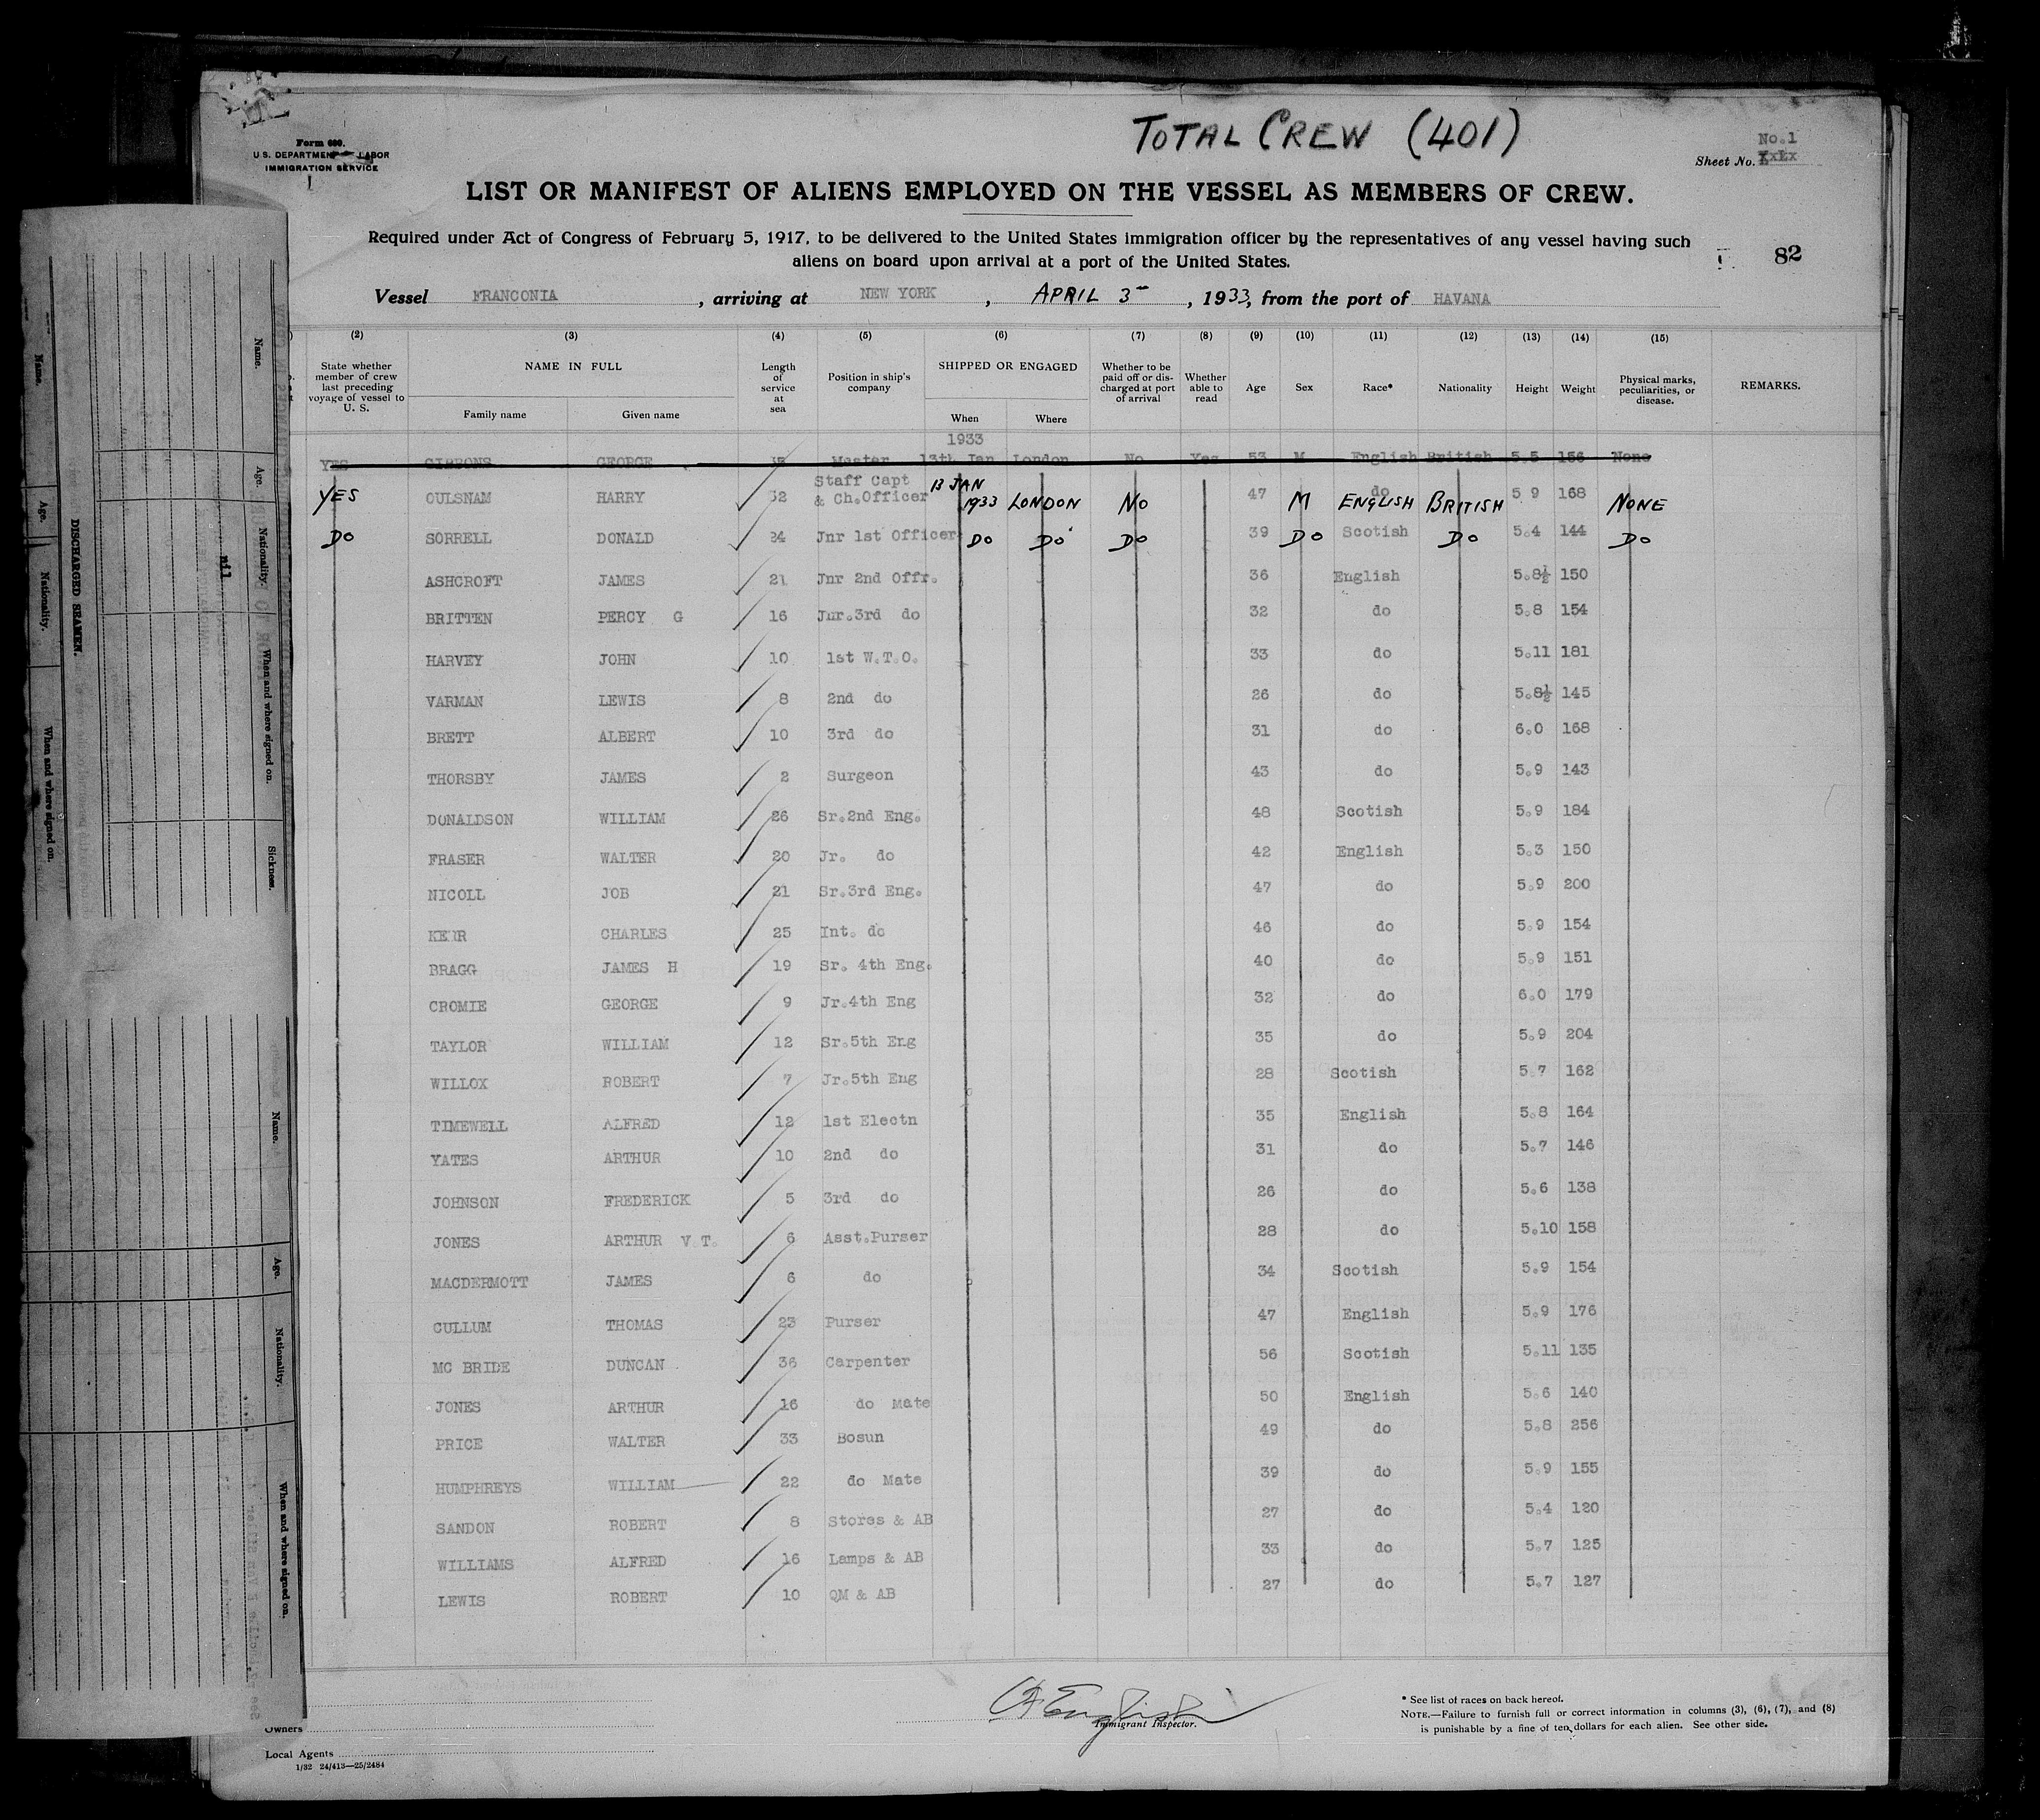 TOTAL CREW (401)
No.1
Form 680.
U.S. DEPARTMENT LABOR
IMMIGRATION SERVICE
Sheet No.
LIST OR MANIFEST OF ALIENS EMPLOYED ON THE VESSEL AS MEMBERS OF CREW.
Required under Act of Congress of February 5, 1917, to be delivered to the United States immigration officer by the representatives of any vessel having such
aliens on board upon arrival at a port of the United States.
82
Vessel FRANCONIA, arriving at NEW YORK, APRIL 3, 1933, from the port of HAVANA
(2) (3) (4) (5) (6) (7) (8) (9) (10) (11) (12) (13) (14) (15)
State whether member of crew last preceding voyage of vessel to U. S. NAME IN FULL Family name Given name Length of service at sea Position in ship's company SHIPPED OR ENGAGED When Where Whether to be paid off or discharged at port of arrival Whether able to read Age Sex Race* Nationality Height Weight Physical marks, peculiarities, or disease. REMARKS.
1933
YES GIBBONS GEORGE Master 13th Jan London No Yes 53 M English British 5.5 156 None
YES OULSNAM HARRY 32 Staff Capt & Ch.Officer 13 JAN 1933 LONDON NO 47 M do ENGLISH BRITISH 5 9 168 NONE
DO SORRELL DONALD 24 Jnr 1st Officer DO DO DO 39 DO Scotish DO 5.4 144 DO
ASHCROFT JAMES 21 Jnr 2nd Offr. 36 English 5.8½ 150
BRITTEN PERCY G 16 Jnr.3rd do 32 do 5.8 154
HARVEY JOHN 10 1st W.T.O. 33 do 5.11 181
VARMAN LEWIS 8 2nd do 26 do 5.8½ 145
BRETT ALBERT 10 3rd do 31 do 6.0 168
THORSBY JAMES 2 Surgeon 43 do 5.9 143
DONALDSON WILLIAM 26 Sr.2nd Eng. 48 Scotish 5.9 184
FRASER WALTER 20 Jr. do 42 English 5.3 150
NICOLL JOB 21 Sr.3rd Eng. 47 do 5.9 200
KERR CHARLES 25 Int. do 46 do 5.9 154
BRAGG JAMES H 19 Sr. 4th Eng. 40 do 5.9 151
CROMIE GEORGE 9 Jr.4th Eng 32 do 6.0 179
TAYLOR WILLIAM 12 Sr.5th Eng 35 do 5.9 204
WILLOX ROBERT 7 Jr.5th Eng 28 Scotish 5.7 162
TIMEWELL ALFRED 12 1st Electn 35 English 5.8 164
YATES ARTHUR 10 2nd do 31 do 5.7 146
JOHNSON FREDERICK 5 3rd do 26 do 5.6 138
JONES ARTHUR V T. 6 Asst.Purser 28 do 5.10 158
MACDERMOTT JAMES 6 do 34 Scotish 5.9 154
CULLUM THOMAS 23 Purser 47 English 5.9 176
MC BRIDE DUNCAN 36 Carpenter 56 Scotish 5.11 135
JONES ARTHUR 16 do Mate 50 English 5.6 140
PRICE WALTER 33 Bosun 49 do 5.8 256
HUMPHREYS WILLIAM 22 do Mate 39 do 5.9 155
SANDON ROBERT 8 Stores & AB 27 do 5.4 120
WILLIAMS ALFRED 16 Lamps & AB 33 do 5.7 125
LEWIS ROBERT 10 QM & AB 27 do 5.7 127
English
Immigrant Inspector.
* See list of races on back hereof.
NOTE.—Failure to furnish full or correct information in columns (3), (6), (7), and (8)
is punishable by a fine of ten dollars for each alien. See other side.
Owners
Local Agents
1/32 24/413—25/2484
DISCHARGED SEAMEN.
Name. Age. Nationality. When and where signed on.
Name. Age. Nationality. When and where signed on. Sickness.
nil
Name. Age. Nationality. When and where signed on.